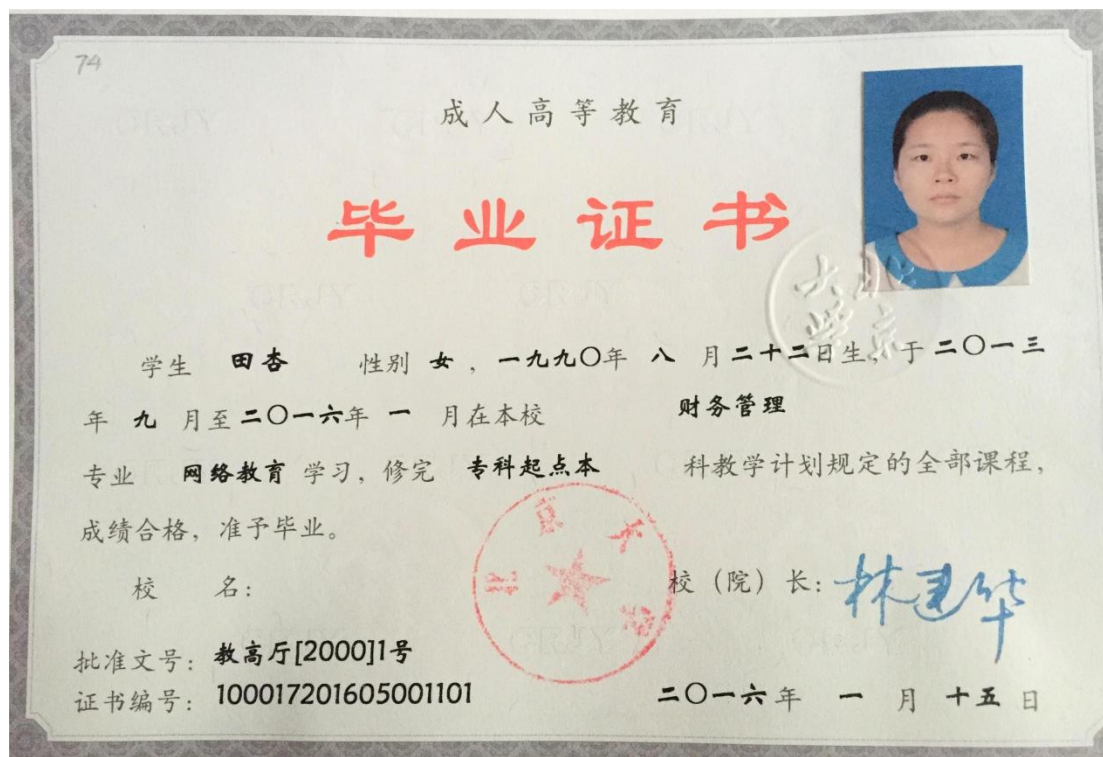 74
成人高等教育
毕业证书
学生 田杏 性别 女，一九九〇年 八 月二十二日生，于二〇一三
年 九 月至二〇一六年 一 月在本校 财务管理
专业 网络教育 学习，修完 专科起点本 科教学计划规定的全部课程，
成绩合格，准予毕业。
校 名： 校（院）长：林建华
北京大学
北京大学
批准文号：教高厅[2000]1号
证书编号：100017201605001101 二〇一六年 一 月 十五 日